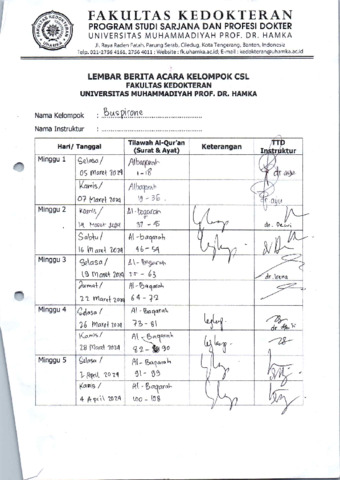 FAKULTAS KEDOKTERAN
PROGRAM STUDI SARJANA DAN PROFESI DOKTER
UNIVERSITAS MUHAMMADIYAH PROF. DR. HAMKA
Jl. Raya Raden Patah, Parung Serab, Ciledug, Kota Tangerang, Banten, Indonesia
LEMBAR BERITA ACARA KELOMPOK CSL
FAKULTAS KEDOKTERAN
UNIVERSITAS MUHAMMADIYAH PROF. DR. HAMKA
Nama Kelompok : Buspirone
Nama Instruktur :
Hari/ Tanggal Tilawah Al-Qur'an (Surat & Ayat) Keterangan TTD Instruktur
Minggu 1 Selasa/ Albaqarah
05 Maret 2024 1-18
Kamis/ Albaqarah
07 Maret 2024 19-36 dr. ayu
Minggu 2 Kamis/ Al-baqarah
14 Maret 2024 37-45 Lengkap
Sabtu/ Al-baqarah
16 Maret 2024 46-54 Lengkap
Minggu 3 Selasa/ Al-Baqarah
19 Maret 2024 55-63
Jumat/ Al-Baqarah
22 Maret 2024 64-72
Minggu 4 Selasa/ Al-Baqarah
26 Maret 2024 73-81 lengkap
Kamis/ Al-Baqarah
28 Maret 2024 82-90 lengkap
Minggu 5 Selasa/ Al-Baqarah
2 April 2024 91-99
Kamis/ Al-Baqarah
4 April 2024 100-108